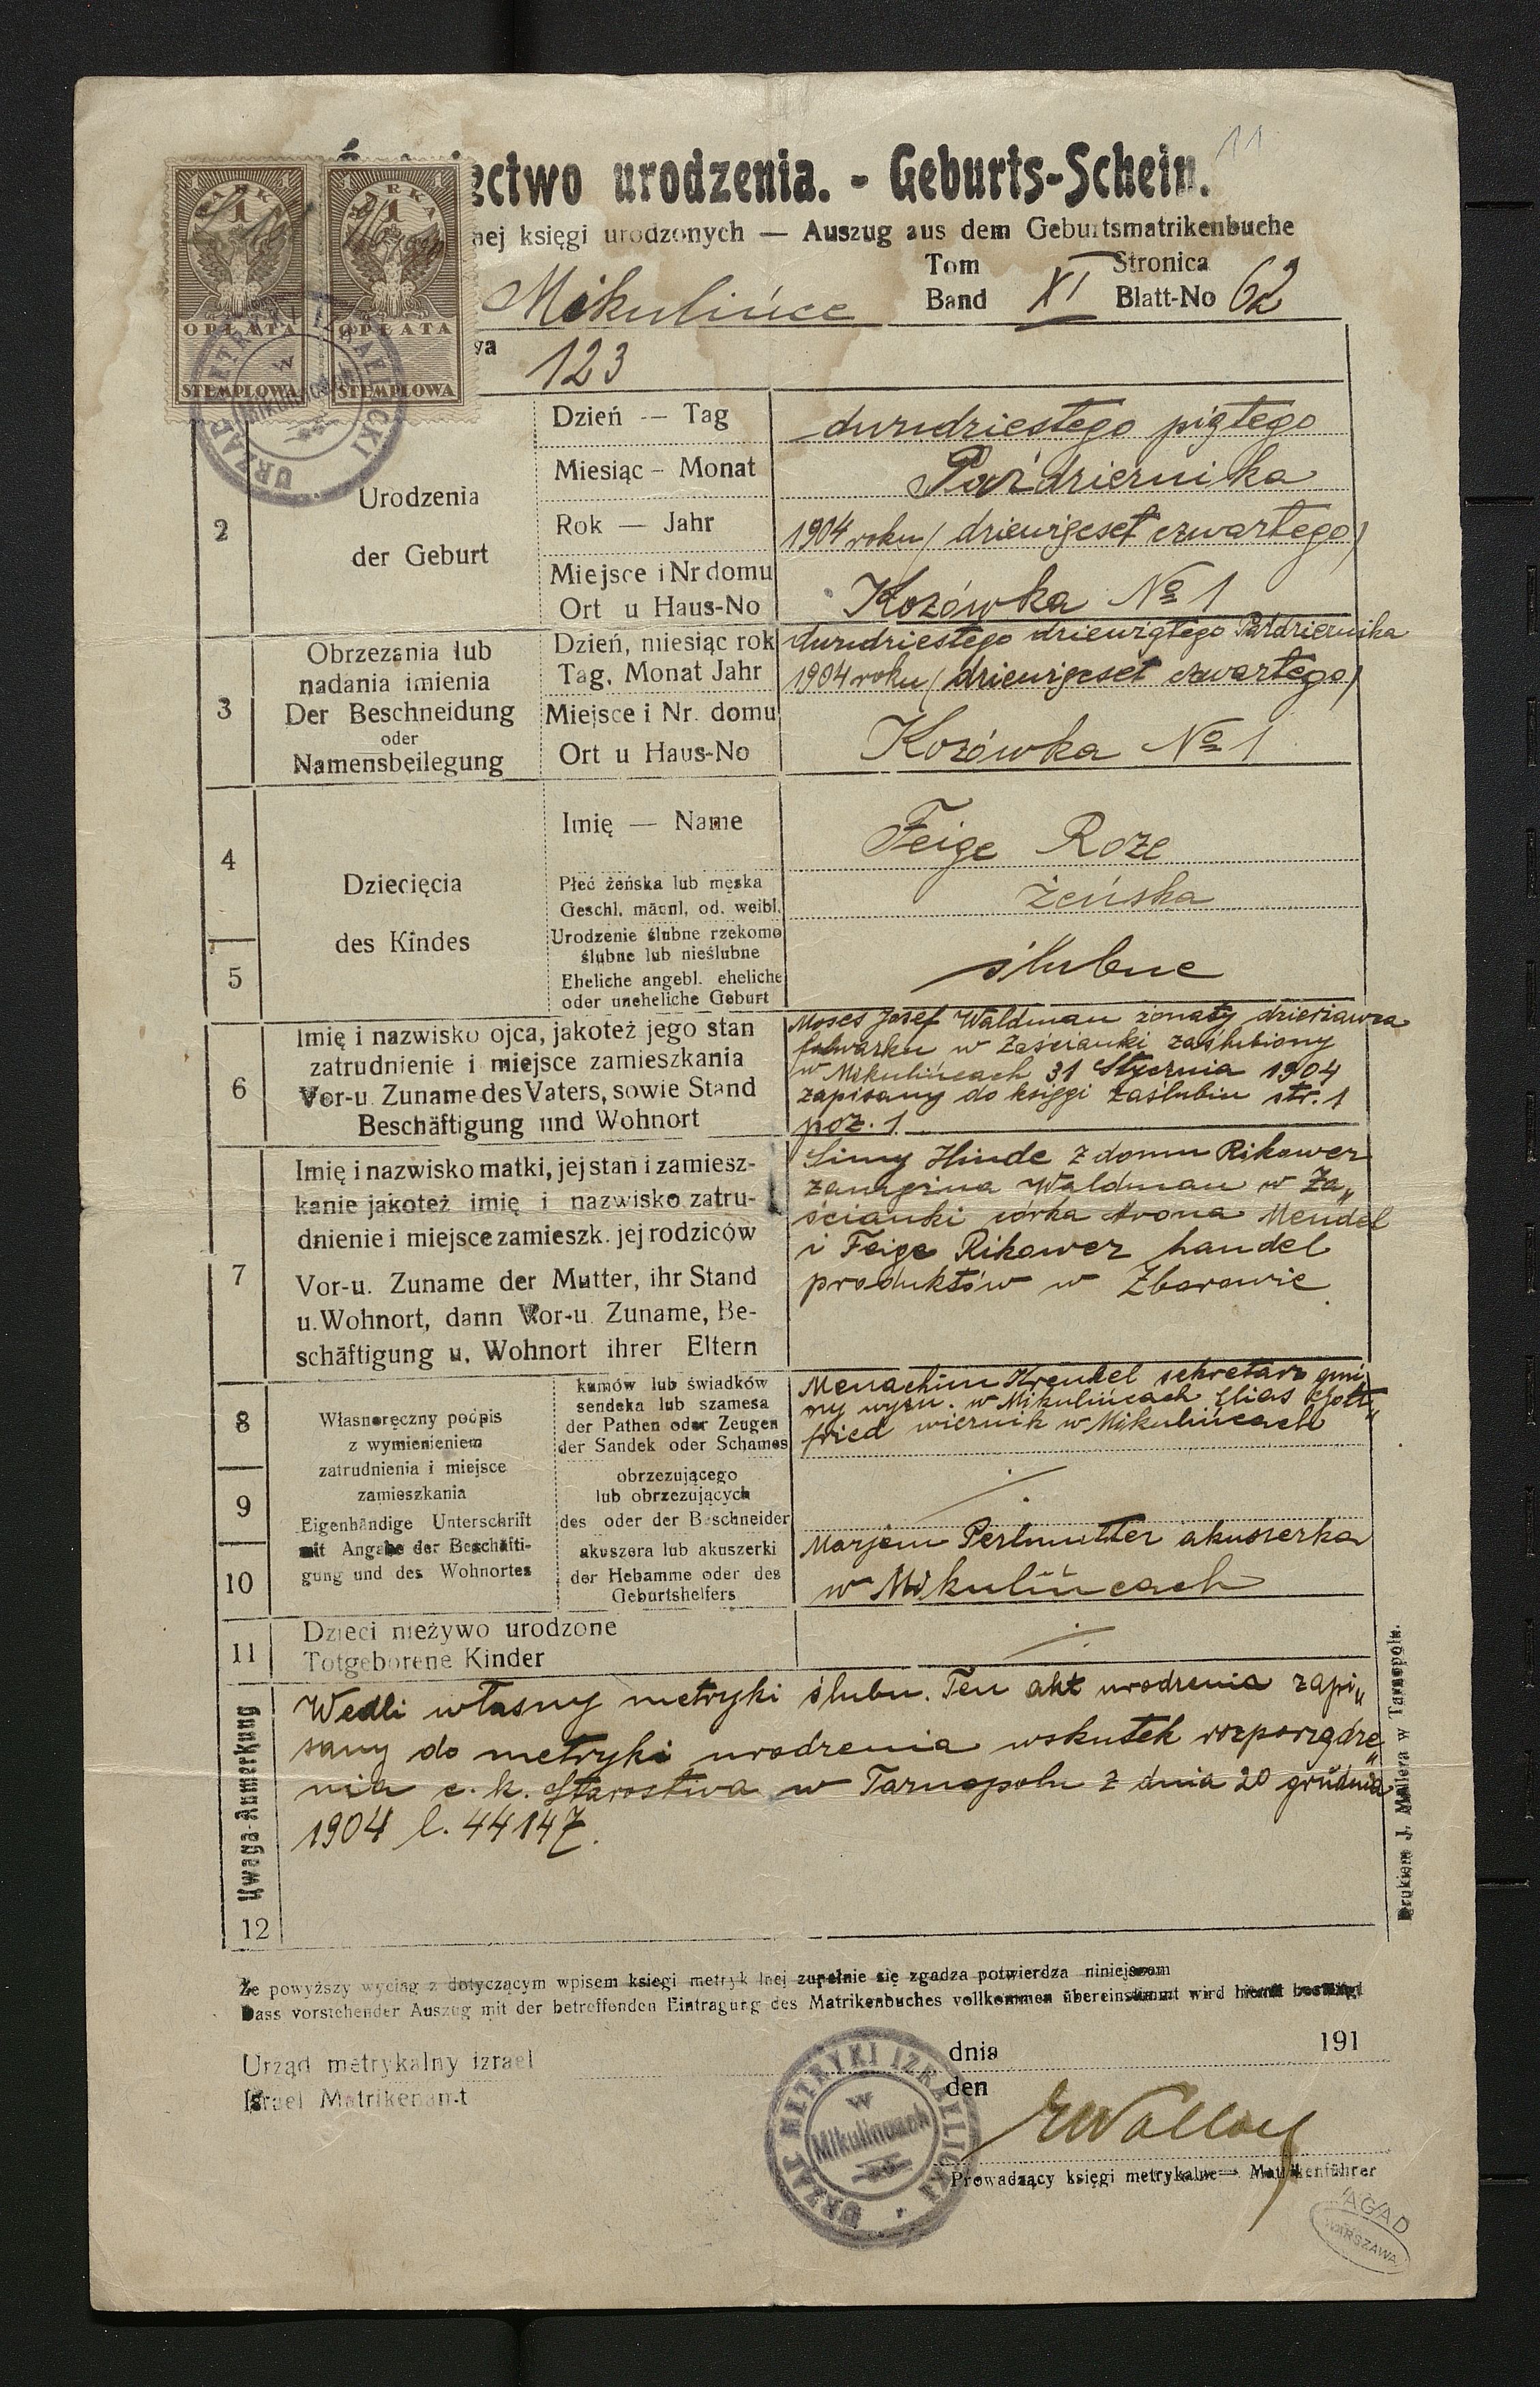 11
ectwo urodzenia. - Geburts-Schein.
nej księgi urodzonych — Auszug aus dem Geburtsmatrikenbuche
Mikulińce
Tom
Band
XI
Stronica
Blatt-No
62
wa
123
MARKA
1
OPŁATA
STEMPLOWA
MARKA
1
OPŁATA
STEMPLOWA
URZĄD METRYKI IZRAELICKI
w
Mikulincach
2
Urodzenia
der Geburt
Dzień — Tag
dwudziestego piątego
Miesiąc - Monat
Października
Rok — Jahr
1904 roku (dziewięćset czwartego)
Miejsce i Nr domu
Ort u Haus-No
Kozówka № 1
3
Obrzezania lub
nadania imienia
Der Beschneidung
oder
Namensbeilegung
Dzień, miesiąc rok
Tag, Monat Jahr
dwudziestego dziewiątego Października
1904 roku (dziewięćset czwartego)
Miejsce i Nr. domu
Ort u Haus-No
Kozówka № 1
4
5
Dziecięcia
des Kindes
Imię — Name
Feige Roze
Płeć żeńska lub męska
Geschl. männl, od. weibl.
żeńska
Urodzenie ślubne rzekomo
ślubne lub nieślubne
Eheliche angebl. eheliche
oder uneheliche Geburt
ślubne
6
Imię i nazwisko ojca, jakoteż jego stan
zatrudnienie i miejsce zamieszkania
Vor-u. Zuname des Vaters, sowie Stand
Beschäftigung und Wohnort
Moses Josef Waldman żonaty dzierżawca
folwarku w Zaścianki zaślubiony
w Mikulińcach 31 Stycznia 1904
zapisany do księgi zaślubin str. 1
poz. 1.
7
Imię i nazwisko matki, jej stan i zamiesz-
kanie jakoteż imię i nazwisko zatru-
dnienie i miejsce zamieszk. jej rodziców
Vor-u. Zuname der Mutter, ihr Stand
u. Wohnort, dann Vor-u. Zuname, Be-
schäftigung u. Wohnort ihrer Eltern
Simy Hinde z domu Rikower
zamężna Waldman w Za„
ścianki córka Arona Mendel
i Feige Rikower handel
produktów w Zborowie
8
9
10
Własnoręczny podpis
z wymienieniem
zatrudnienia i miejsce
zamieszkania
Eigenhändige Unterschrift
mit Angabe der Beschäfti-
gung und des Wohnortes
kumów lub świadków
sendeka lub szamesa
der Pathen oder Zeugen
der Sandek oder Schames
Menachim Krenkel sekretarz gmi„
ny wyzn. w Mikulińcach Elias Gott„
fried wiernik w Mikulińcach
obrzezującego
lub obrzezujących
des oder der Beschneider
akuszera lub akuszerki
der Hebamme oder des
Geburtshelfers
Marjem Perlmutter akuszerka
w Mikulińcach
11
Dzieci nieżywo urodzone
Totgeborene Kinder
Uwaga-Anmerkung
12
Wedli własny metryki ślubu. Ten akt urodzenia zapi„
sany do metryki urodzenia wskutek rozporządze„
nia c. k. Starostwa w Tarnopolu z dnia 20 grudnia
1904 l. 44147.
Drukiem J. Mallera w Tarnopolu.
Że powyższy wyciąg z dotyczącym wpisem księgi metrykalnej zupełnie się zgadza potwierdza niniejszem
Dass vorstehender Auszug mit der betreffenden Eintragung des Matrikenbuches vollkommen übereinstimmt wird hiemit bestätigt
Urząd metrykalny izrael
Israel Matrikenamt
dnia
den
191
URZĄD METRYKI IZRAELICKI
w
Mikulincach
Prowadzący księgi metrykalne — Matrikenführer
AGAD
WARSZAWA